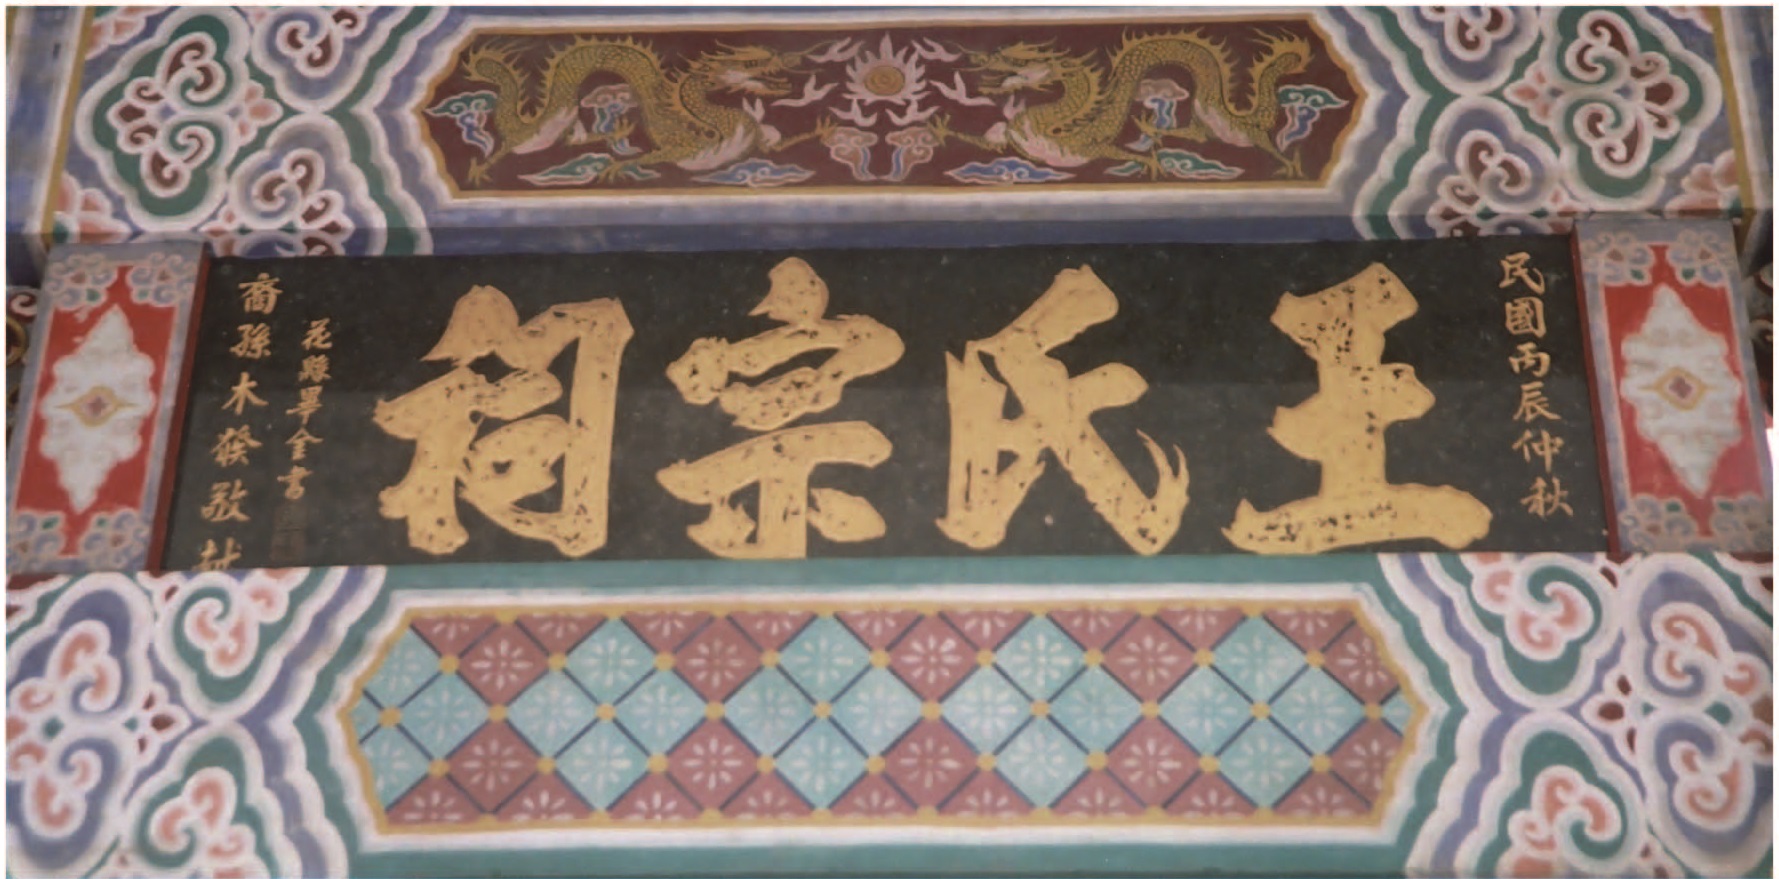 民國丙辰仲秋
王氏宗祠
花縣畢金書
裔孫木發敬